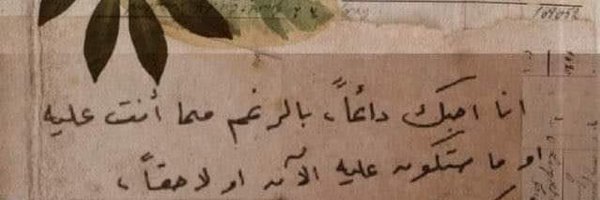 انا احبك دائماً، بالرغم مما أنت عليه
او ما ستكون عليه الآن او لاحقاً،